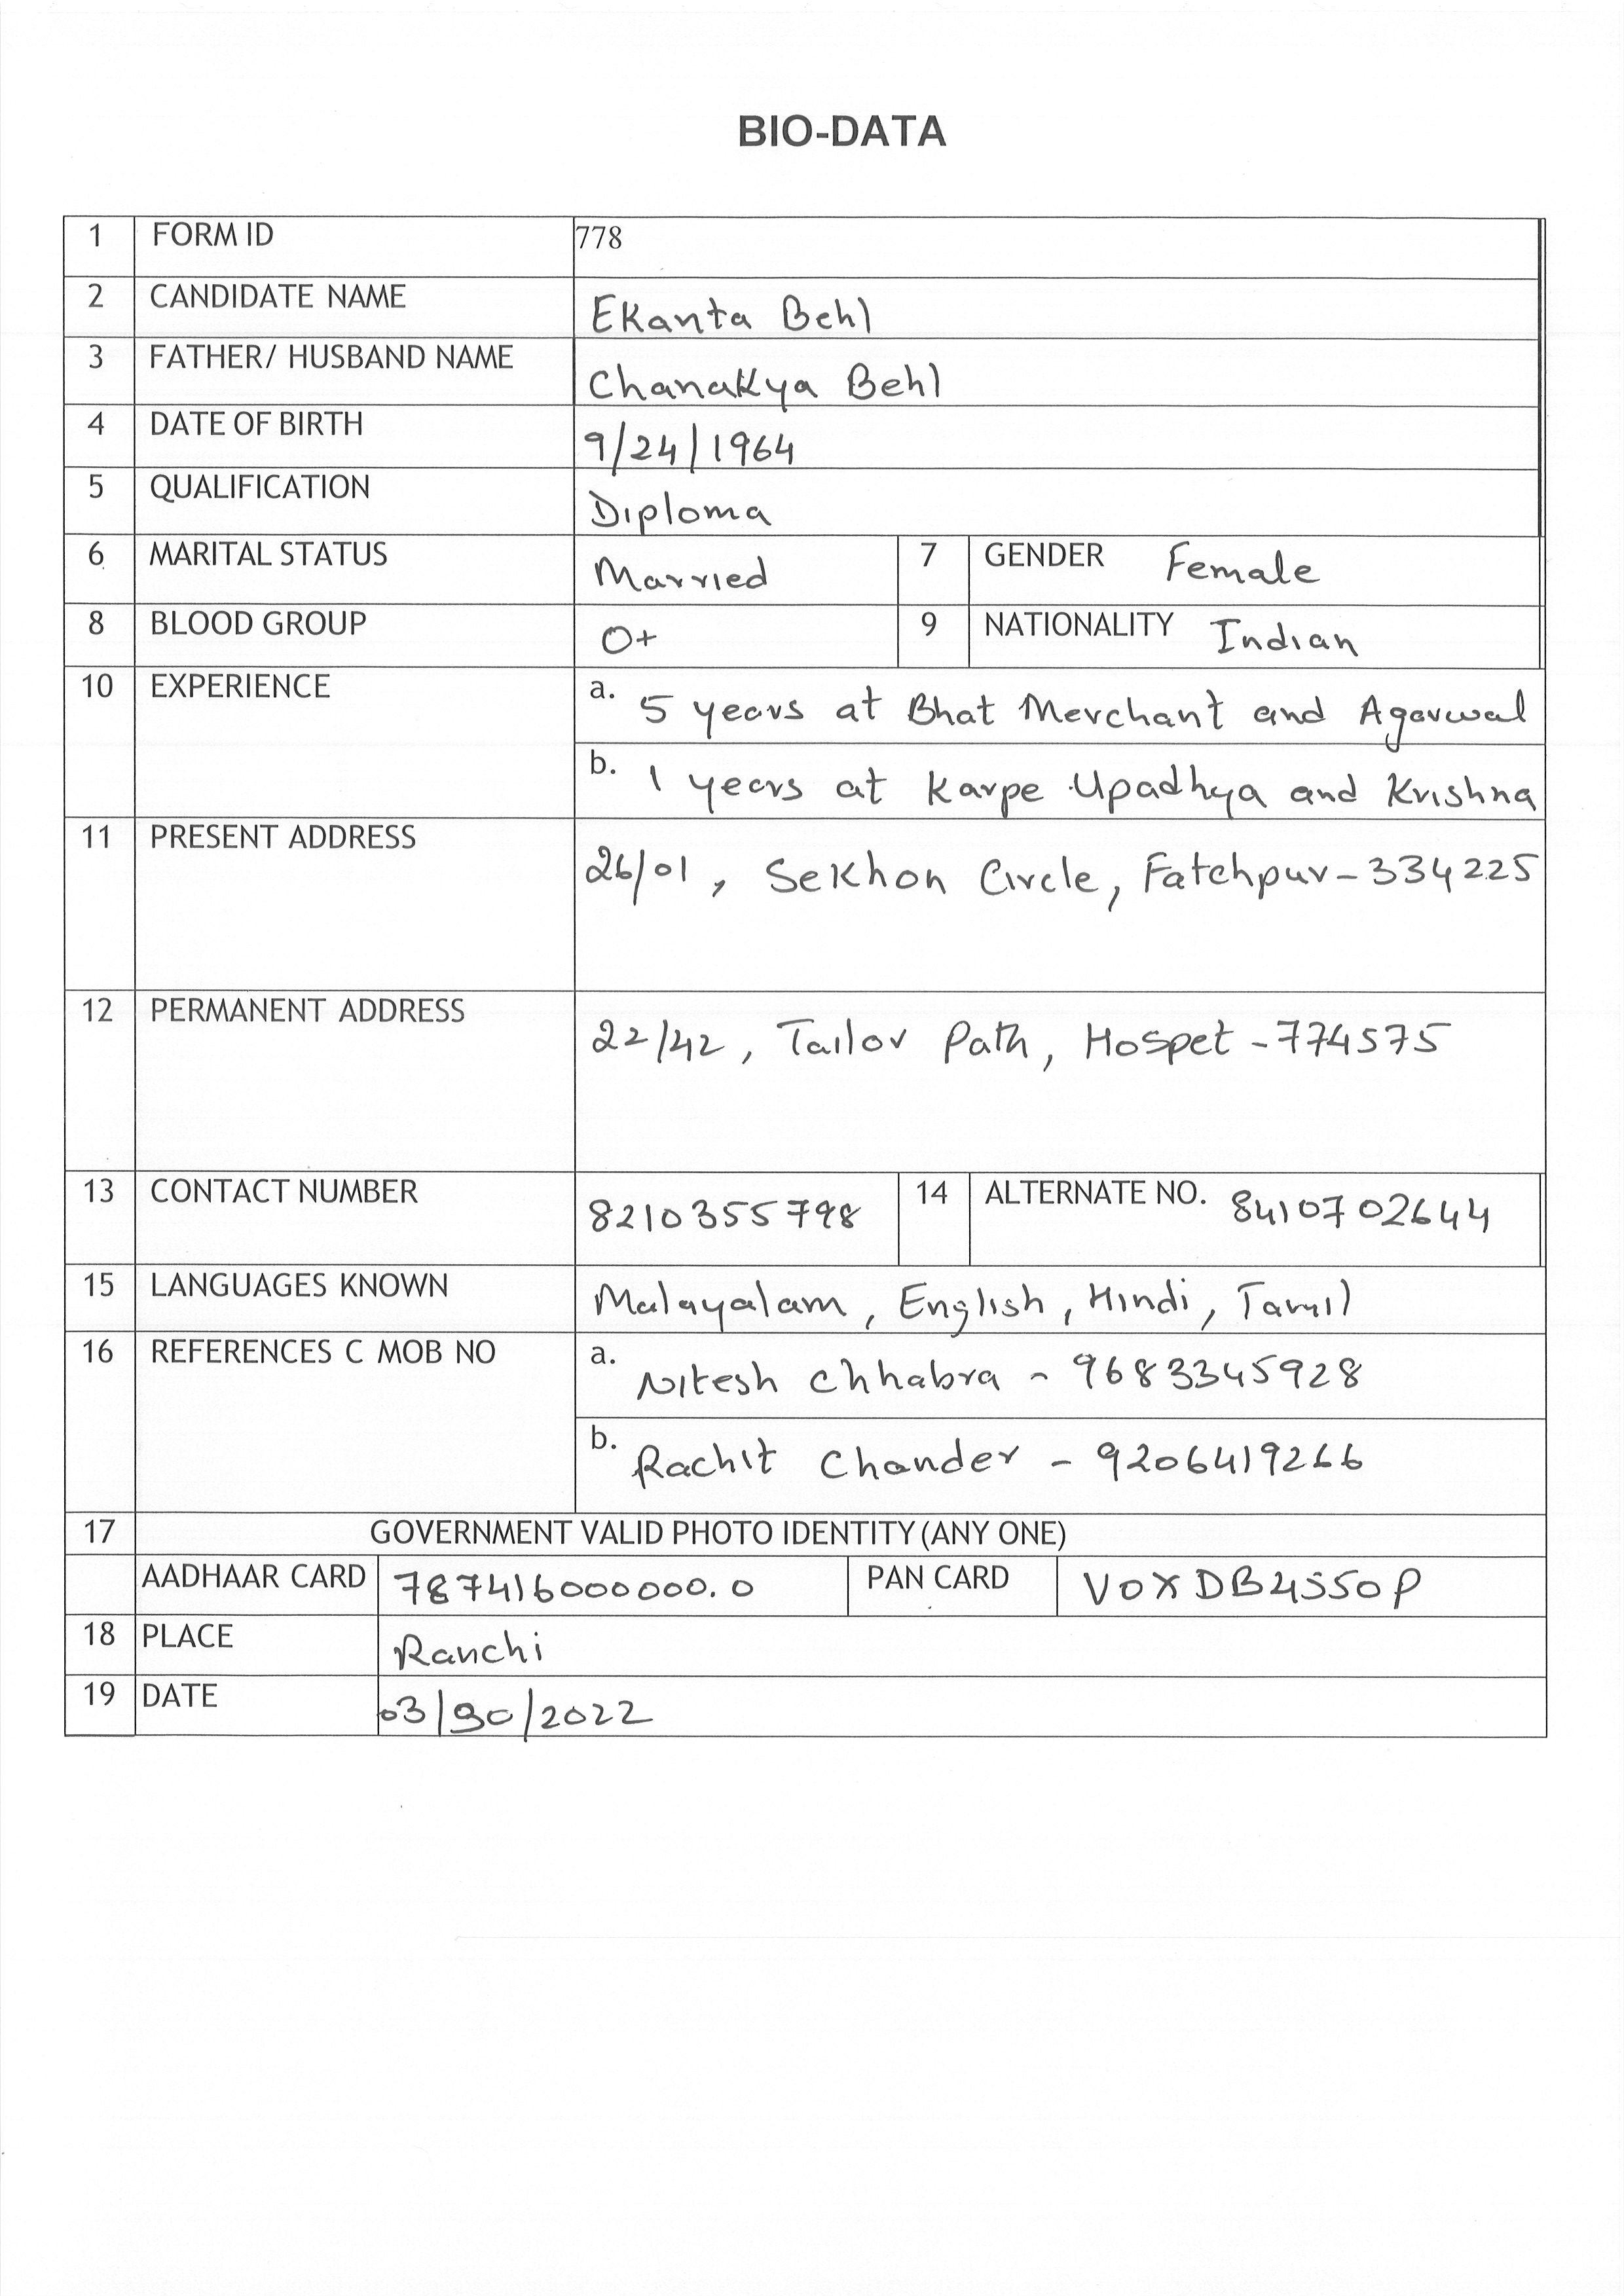 BIO-DATA
1 FORM ID 778
2 CANDIDATE NAME Ekanta Behl
3 FATHER/ HUSBAND NAME Chanakya Behl
4 DATE OF BIRTH 9/24/1964
5 QUALIFICATION Diploma
6 MARITAL STATUS Married 7 GENDER Female
8 BLOOD GROUP O+ 9 NATIONALITY Indian
10 EXPERIENCE a. 5 years at Bhat Merchant and Agarwal
b. 1 years at Karpe Upadhya and Krishna
11 PRESENT ADDRESS 26/01, Sekhon Circle, Fatehpur-334225
12 PERMANENT ADDRESS 22/42, Tailor Path, Hospet-774575
13 CONTACT NUMBER 8210355798 14 ALTERNATE NO. 8410702644
15 LANGUAGES KNOWN Malayalam, English, Hindi, Tamil
16 REFERENCES C MOB NO a. Nitesh Chhabra - 9683345928
b. Rachit Chander - 9206419266
17 GOVERNMENT VALID PHOTO IDENTITY (ANY ONE)
AADHAAR CARD 787416000000.0 PAN CARD VOXDB4550P
18 PLACE Ranchi
19 DATE 03/30/2022